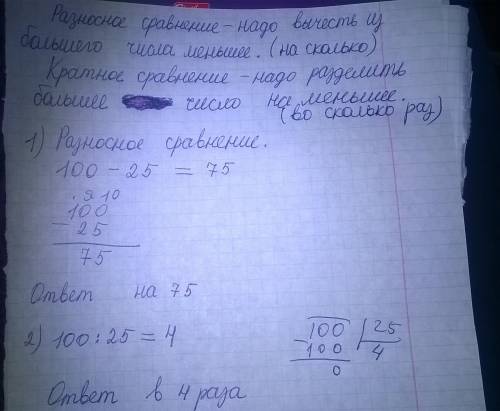 Разносное сравнение - надо вычесть из
большего числа меньшее. (на сколько)
Кратное сравнение - надо разделить
большее число на меньшее.
(во сколько раз)
1) Разносное сравнение.
100 - 25 = 75
. 9 10
100
- 25
75
Ответ на 75
2) 100 : 25 = 4
100 | 25
- 100 4
0
Ответ в 4 раза